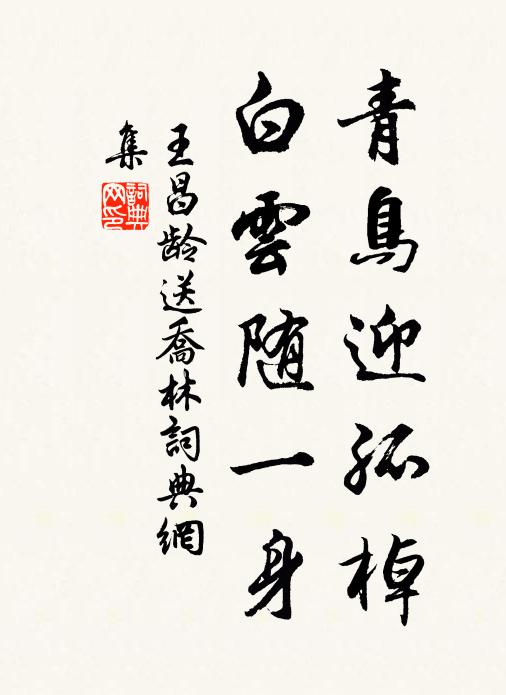 青鳥迎孤棹
白雲随一身
王昌龄送喬林詞典網
集
詞典
网印